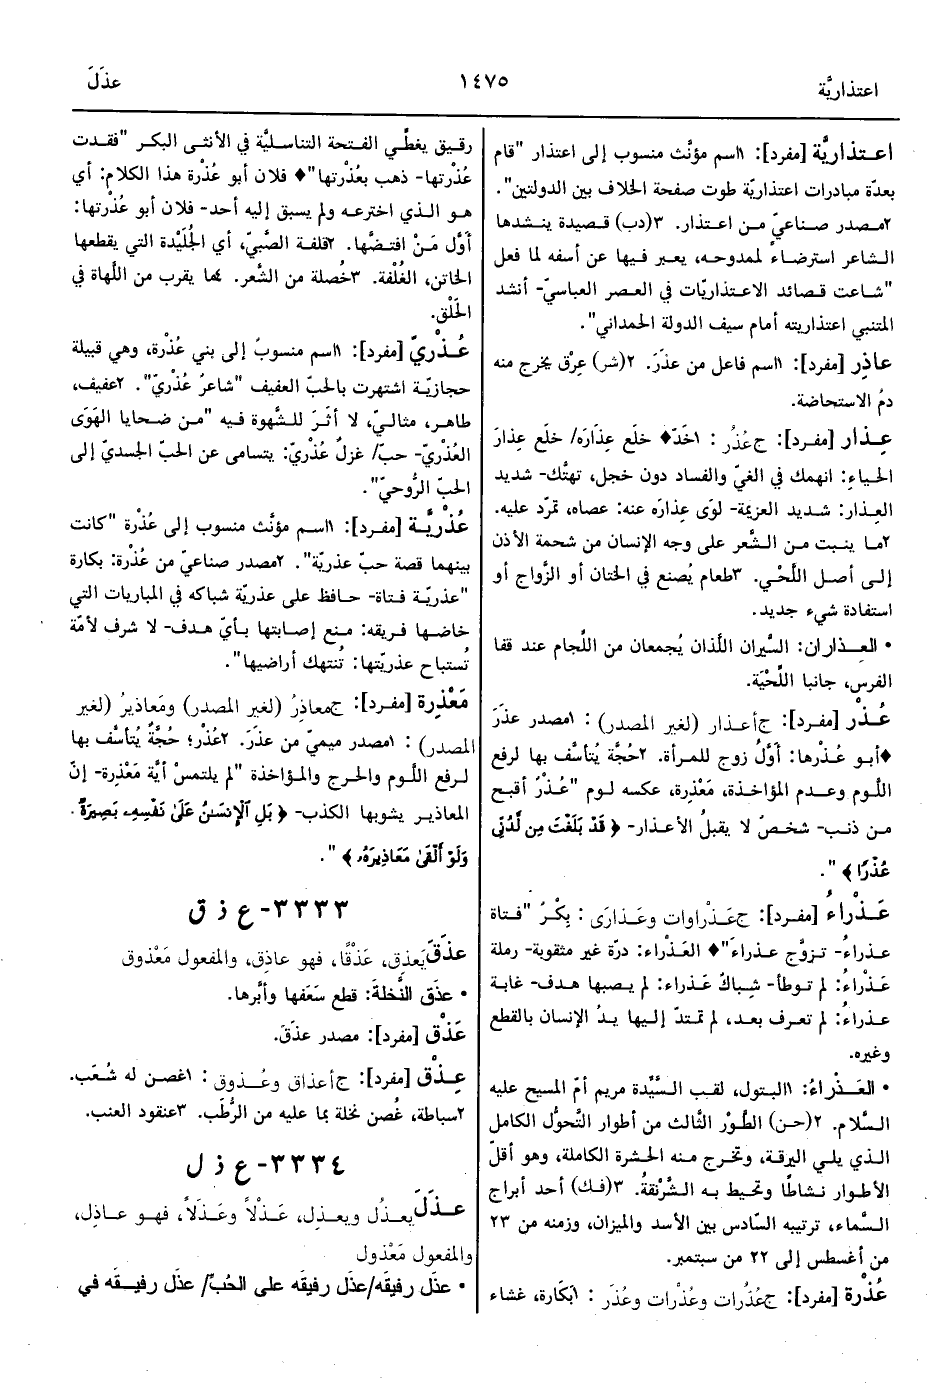 اعتذاريَّة
١٤٧٥
عذَلَ
اعـتذاريَّة [مفرد]: ١اسم مؤنَّث منسوب إلى اعتذار "قام
بعدّة مبادرات اعتذاريّة طوت صفحة الخلاف بين الدولتين".
٢مصدر صـناعيّ مـن اعـتذار. ٣(دب) قـصيدة ينـشدها
الشاعر استرضاءً لممدوحـه، يعبر فيها عن أسفه لما فعل
"شـاعت قـصائد الاعـتذاريّات في العـصر العباسيّ- أنشد
المتنبي اعتذاريته أمام سيف الدولة الحمداني".
عاذِر [مفرد]: ١اسم فاعل من عذَرَ. ٢(شر) عِرْق يخرج منه
دمُ الاستحاضة.
عِـذار [مفـرد]: ج عُذُر: ١خَدّ♦ خلَع عِذارَه/ خلَع عِذارَ
الحـياءِ: انهمك في الغيّ والفساد دون خجل، تهتُّك- شديد
العِـذار: شديد العزيمة- لوَى عِذارَه عنه: عصاه، تمرّد عليه.
٢ما ينـبت مـن الـشَّعر على وجه الإنسان من شحمة الأذن
إلـى أصـل اللَّحْي. ٣طعام يُصنع في الختان أو الزَّواج أو
استفادة شيء جديد.
• العِـذاران: السَّيران اللَّذان يُجمعان من اللِّجام عند قفا
الفرس، جانبا اللِّحْيَة.
عُـذْر [مفـرد]: ج أعـذار (لغير المصدر): ١مصدر عذَرَ
♦أبـو عُـذْرها: أوَّلُ زوج للمرأة. ٢حُجَّة يُتأسَّف بها لرفع
اللَّوم وعـدم المؤاخذة، مَعْذِرة، عكسه لوم "عُـذْرٌ أقبح
مـن ذنـب- شخـصٌ لا يقبلُ الأعـذار- ﴿ قَدْ بَلَغْتَ مِن لَّدُنِّى
عُذْرًا ﴾".
عَـذْراءُ [مفـرد]: ج عَـذْراوات وعَـذارَى: بِكْـرٌ "فـتاة
عـذراءُ- تـزوَّج عـذراءَ"♦ العَـذْراء: درّة غير مثقوبة- رملة
عَـذْراءُ: لم تـوطأ- شِـباكٌ عَـذراء: لم يـصبها هدف- غابة
عـذراءُ: لم تعرف بعد، لم تمتدّ إلـيها يـدُ الإنسان بالقطع
وغيره.
• العَـذْراءُ: ١البتول، لقب السَّيِّدة مريم أمّ المسيح عليه
السَّلام. ٢(حـن) الطَّوْر الثَّالث من أطوار التَّحوُّل الكامل
الذي يلي اليرقة، وتخرج منه الحشرة الكاملة، وهو أقلّ
الأطـوار نـشاطًا وتحـيط بـه الشَّرْنقةُ. ٣(فـك) أحد أبراج
السَّماء، ترتيبه السَّادس بين الأسد والميزان، وزمنه من ٢٣
من أغسطس إلى ٢٢ من سبتمبر.
عُذْرة [مفرد]: ج عُذُرات وعُذْرات وعُذَر: ١بَكَارة، غشاء
رقـيق يغطِّـي الفـتحة التناسليَّة في الأنثى البكر "فقـدت
عُذْرتـها- ذهب بعُذْرتها"♦ فلان أبو عُذْرة هذا الكلام: أي
هـو الـذي اخترعه ولم يسبق إليه أحد- فلان أبو عُذْرتها:
أوَّل مَـنْ افـتضَّها. ٢قلفـة الصَّبيّ، أي الجُلَيْدة التي يقطعها
الخاتن، الغُلْفة. ٣خُصلة من الشَّعر. ٤ما يقرب من اللَّهاة في
الحَلْق.
عُـذْريّ [مفرد]: ١اسم منسوبٌ إلى بني عُذْرة، وهي قبيلة
حجازيّـة اشتهرت بالحـبّ العفيف "شاعرٌ عُذْريّ". ٢عفيف،
طاهـر، مثالـيّ، لا أَثَـرَ للـشَّهوة فـيه "مـن ضـحايا الهَوَى
العُذْريّ- حبّ/ غزلٌ عُذْريّ: يتسامى عن الحبّ الجسديّ إلى
الحبّ الرُّوحيّ".
عُذْرِيَّـة [مفرد]: ١اسم مؤنَّث منسوب إلى عُذْرة "كانت
بينهما قصة حبّ عذريّة". ٢مصدر صناعيّ من عُذْرة: بكارة
"عذريّـة فـتاة- حـافظ على عذريّة شباكه في المباريات التي
خاضـها فـريقه: مـنع إصـابتها بـأيّ هـدف- لا شرف لأمّة
تُستباح عذريّتها: تُنتهك أراضيها".
مَعْـذِرة [مفـرد]: ج معاذِرُ (لغير المصدر) ومَعـاذيرُ (لغير
المصدر): ١مصدر ميميّ من عذَرَ. ٢عُذْر؛ حُجَّةٌ يُتأسَّف بها
لـرفع اللَّـوم والحرج والمـؤاخذة "لم يلتمسْ أيَّة مَعْذرة- إنّ
المعاذيـر يـشوبها الكذب- ﴿ بَلِ ٱلْإِنسَـٰنُ عَلَىٰ نَفْسِهِۦ بَصِيرَةٌ.
وَلَوْ أَلْقَىٰ مَعَاذِيرَهُۥ ﴾".
٣٣٣٣- ع ذ ق
عذَقَ يَعذِق، عَذْقًا، فهو عاذِق، والمفعول مَعْذوق
• عذَق النَّخلةَ: قطع سَعَفها وأبَّرها.
عَذْق [مفرد]: مصدر عذَقَ.
عِـذْق [مفرد]: ج أعذاق وعُـذوق: ١غصن له شُعَب.
٢سباطة، غُصن نخلة بما عليه من الرُّطَب. ٣عنقود العنب.
٣٣٣٤- ع ذ ل
عـذَلَ يعـذُل ويعـذِل، عَـذْلاً وعَـذَلاً، فهـو عـاذِل،
والمفعول مَعْذول
• عذَل رفيقَه/ عذَل رفيقَه على الحُبّ/ عذَل رفيـقَه في